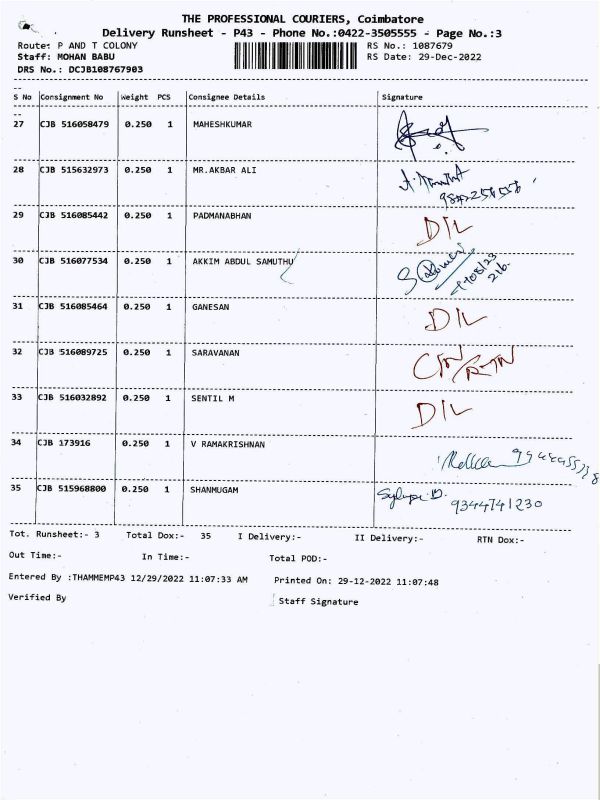 THE PROFESSIONAL COURIERS, Coimbatore
Delivery Runsheet - P43 - Phone No.:0422-3505555 - Page No.:3
Route: P AND T COLONY RS No.: 1087679
Staff: MOHAN BABU RS Date: 29-Dec-2022
DRS No.: DCJB108767903
S No Consignment No Weight PCS Consignee Details Signature
27 CJB 516058479 0.250 1 MAHESHKUMAR
28 CJB 515632973 0.250 1 MR.AKBAR ALI
29 CJB 516085442 0.250 1 PADMANABHAN D/L
30 CJB 516077534 0.250 1 AKKIM ABDUL SAMUTHU
31 CJB 516085464 0.250 1 GANESAN D/L
32 CJB 516089725 0.250 1 SARAVANAN
33 CJB 516032892 0.250 1 SENTIL M D/L
34 CJB 173916 0.250 1 V RAMAKRISHNAN
35 CJB 515968800 0.250 1 SHANMUGAM 9344741230
Tot. Runsheet:- 3 Total Dox:- 35 I Delivery:- II Delivery:- RTN Dox:-
Out Time:- In Time:- Total POD:-
Entered By :THAMMEMP43 12/29/2022 11:07:33 AM Printed On: 29-12-2022 11:07:48
Verified By Staff Signature